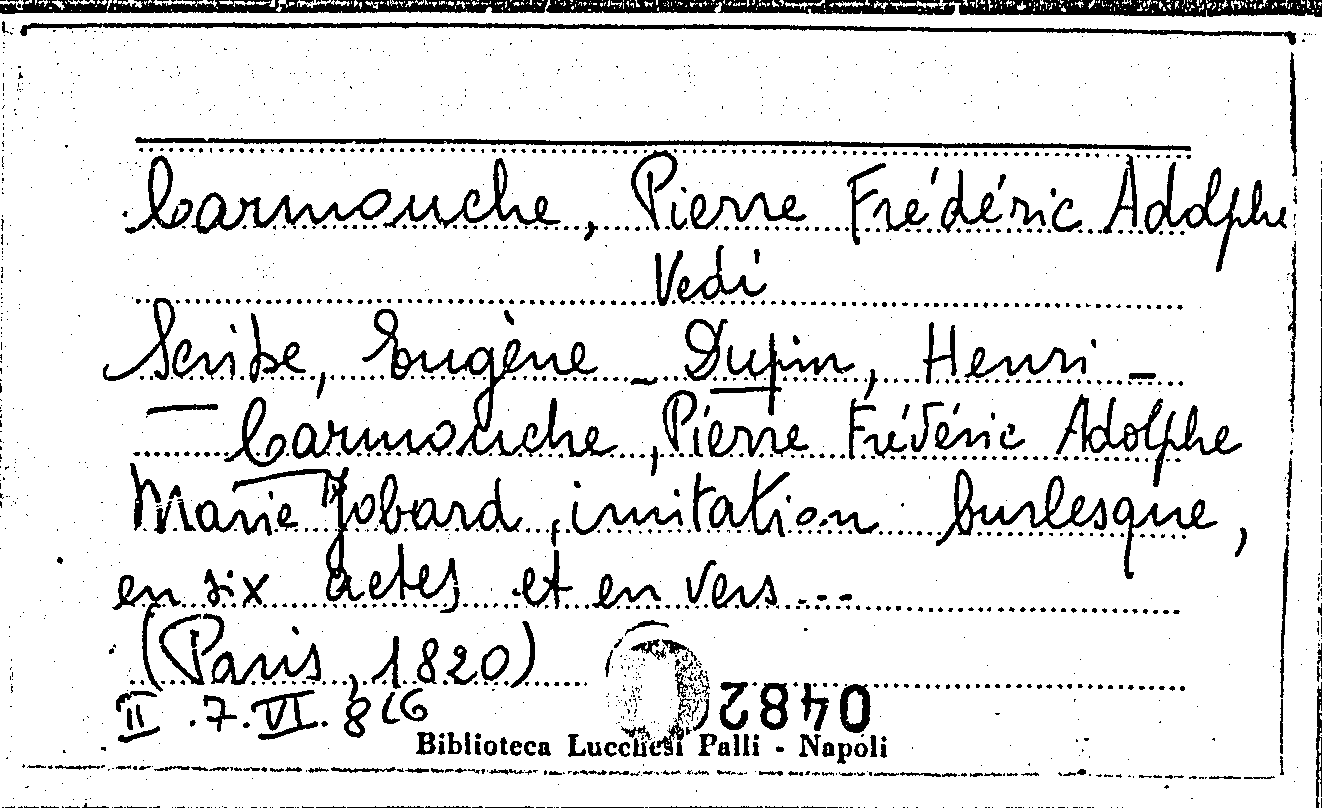 Carmouche, Pierre Frédéric Adolphe
Vedi
Scribe, Eugène - Dupin, Henri -
- Carmouche, Pierre Frédéric Adolphe
Marie Jobard, imitation burlesque,
en six actes et en vers...
(Paris, 1820)
II .7.VI. 8(6
0482
Biblioteca Lucchesi Palli - Napoli